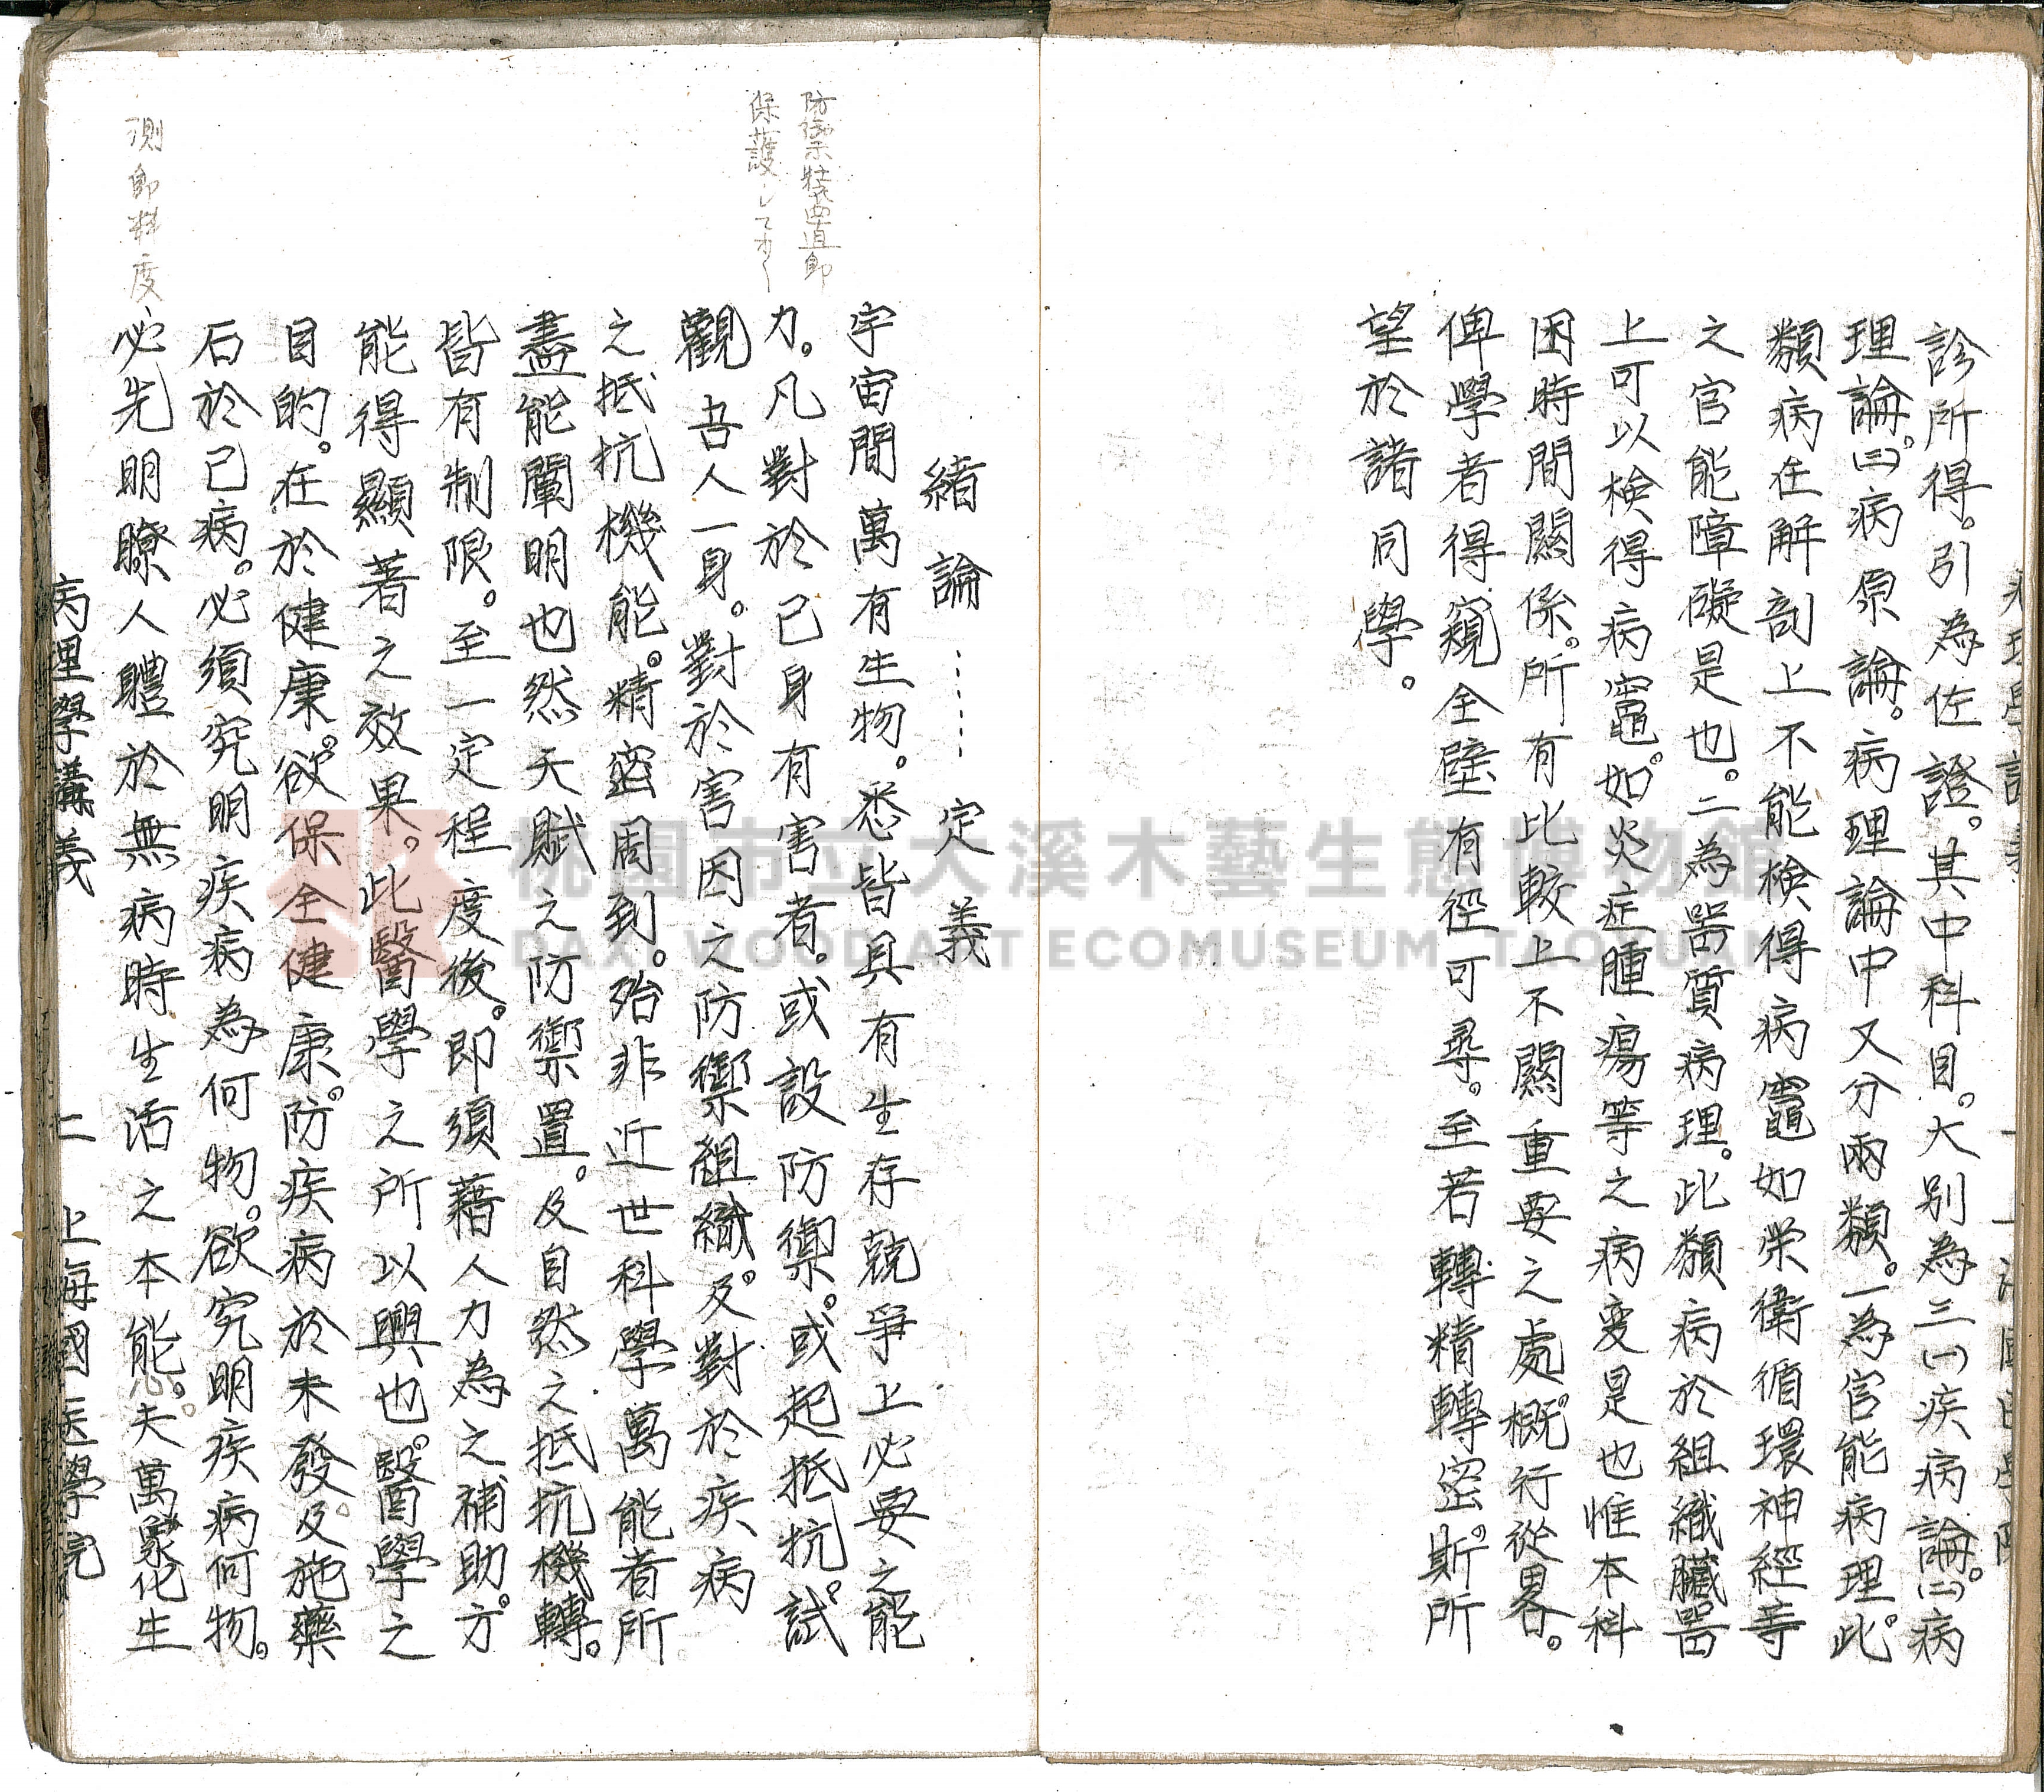 診所得。引為佐證。其中科目。大別為三(一)疾病論。(二)病
理論。(三)病原論。病理論中又分兩類。一為官能病理。此
類病在解剖上不能檢得病竈如栄衛循環神經等
之官能障礙是也。二為器質病理。此類病於組織臟器
上可以檢得病竈。如炎症腫瘍等之病变是也惟本科
因時間關係。所有比較上不關重要之處。概行從畧。
俾學者得窺全壁有徑可尋。至若轉精轉密。斯所
望於諸同學。
緒論……定義
宇宙間萬有生物。悉皆具有生存競爭上必要之能
力。凡對於己身有害者。或設防禦。或起抵抗。試
觀吾人一身。對於害因之防禦組織。及對於疾病
之抵抗機能。精密周到。殆非近世科學萬能者所
盡能闡明也然天賦之防禦置。及自然之抵抗機轉。
皆有制限。至一定程度後。即須藉人力為之補助。方
能得顯著之效果。此醫學之所以興也。醫學之
目的。在於健康。欲保全健康。防疾病於未發。及施藥
石於已病。必須究明疾病為何物。欲究明疾病何物。
必先明瞭人體於無病時生活之本能。夫萬象化生
病理學講義 二 上海國医學院
防禦裝置即
保護シテオク
測即料度
桃園市立大溪木藝生態博物館
DAXI WOOD ART ECOMUSEUM, TAOYUAN